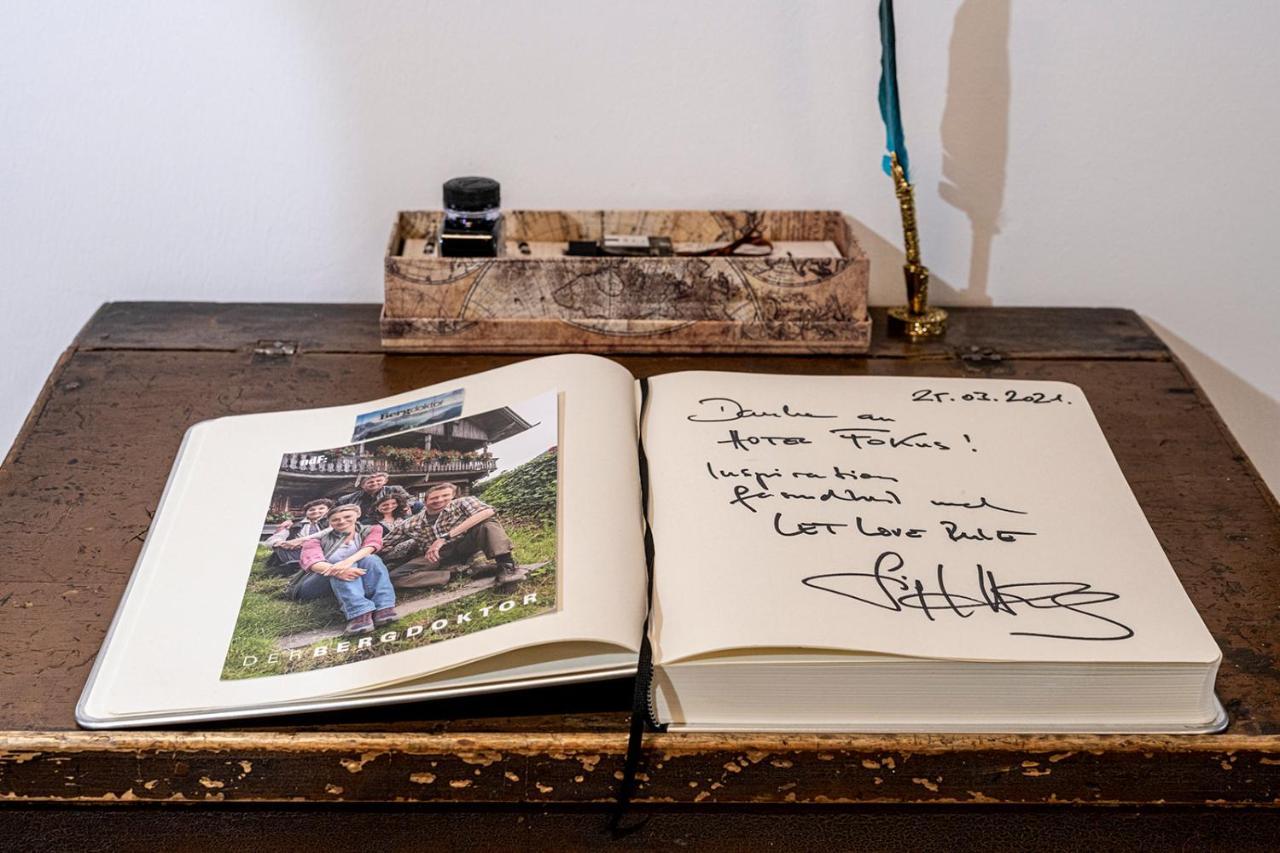 Bergdoktor
ndF:
DER BERGDOKTOR
25.03.2021.
Danke an
HOTEL FOKUS!
Inspiration
und
LET LOVE RULE